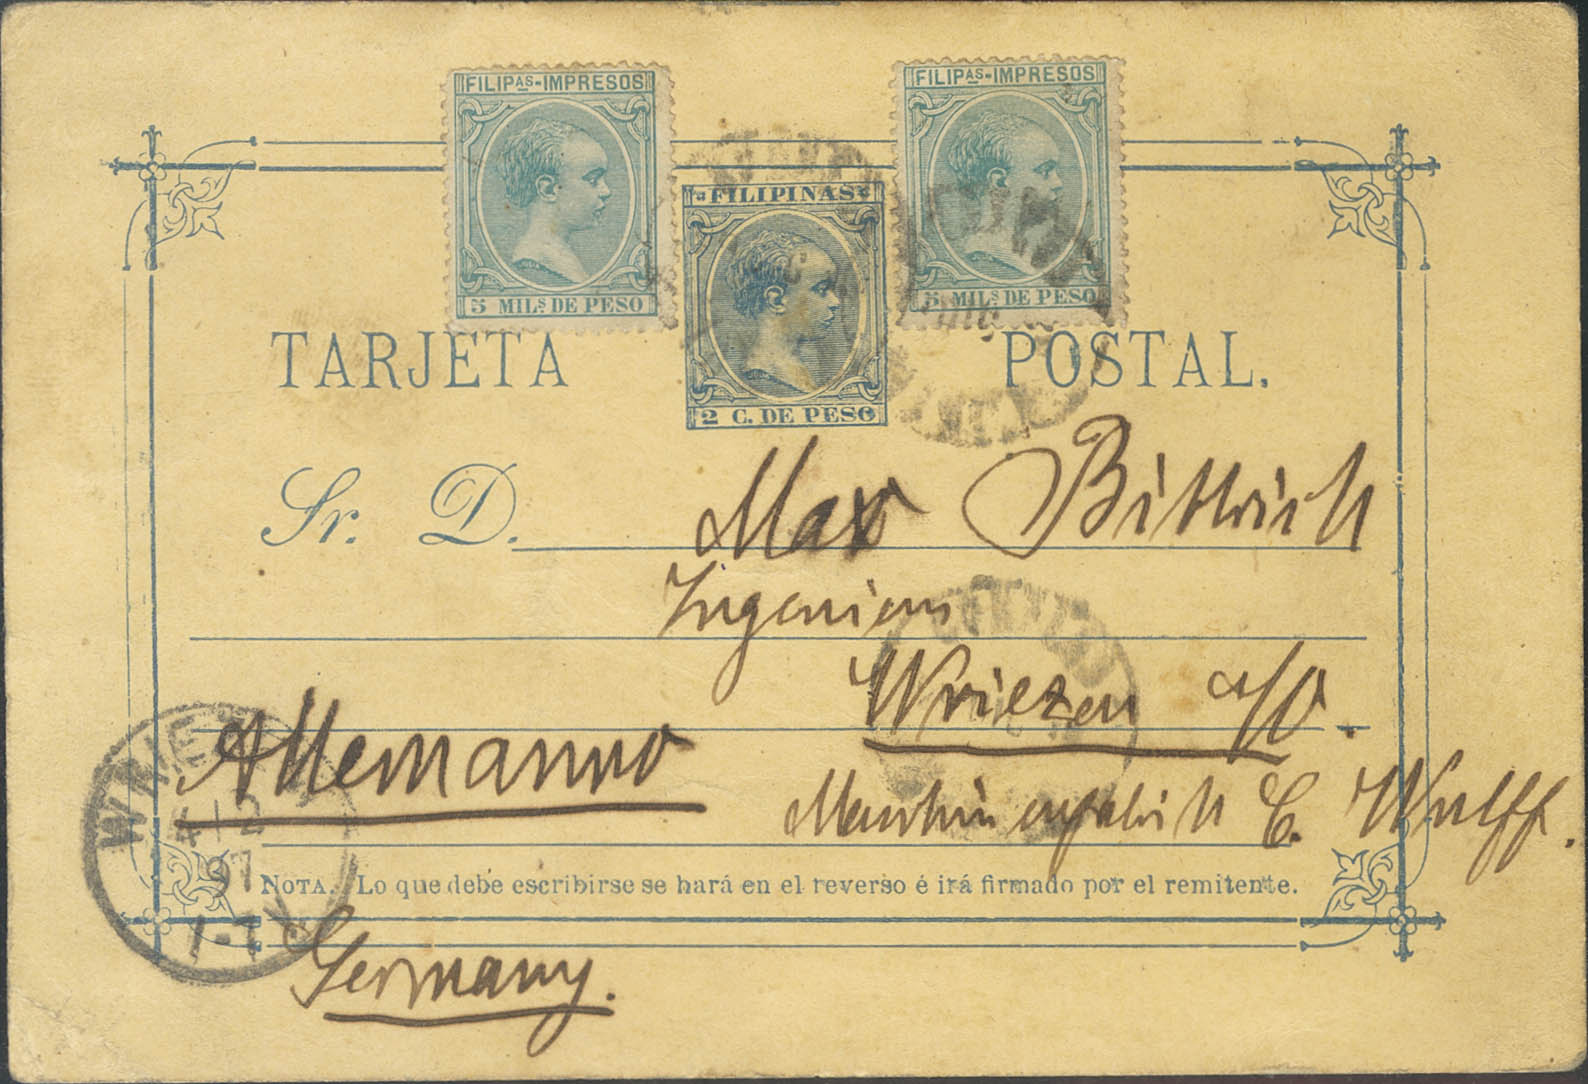 FILIPAS-IMPRESOS
FILIPAS-IMPRESOS
FILIPINAS
5 MILS DE PESO
5 MILS DE PESO
2 C. DE PESO
TARJETA POSTAL.
Sr. D. Max Bittrich
Ingenieur
Wriezen a/O.
Allemanno
Maschinenfabrik C. Wulff.
WRIEZ
4 12
97
1-7
NOTA. Lo que debe escribirse se hará en el reverso é irá firmado por el remitente.
Germany.